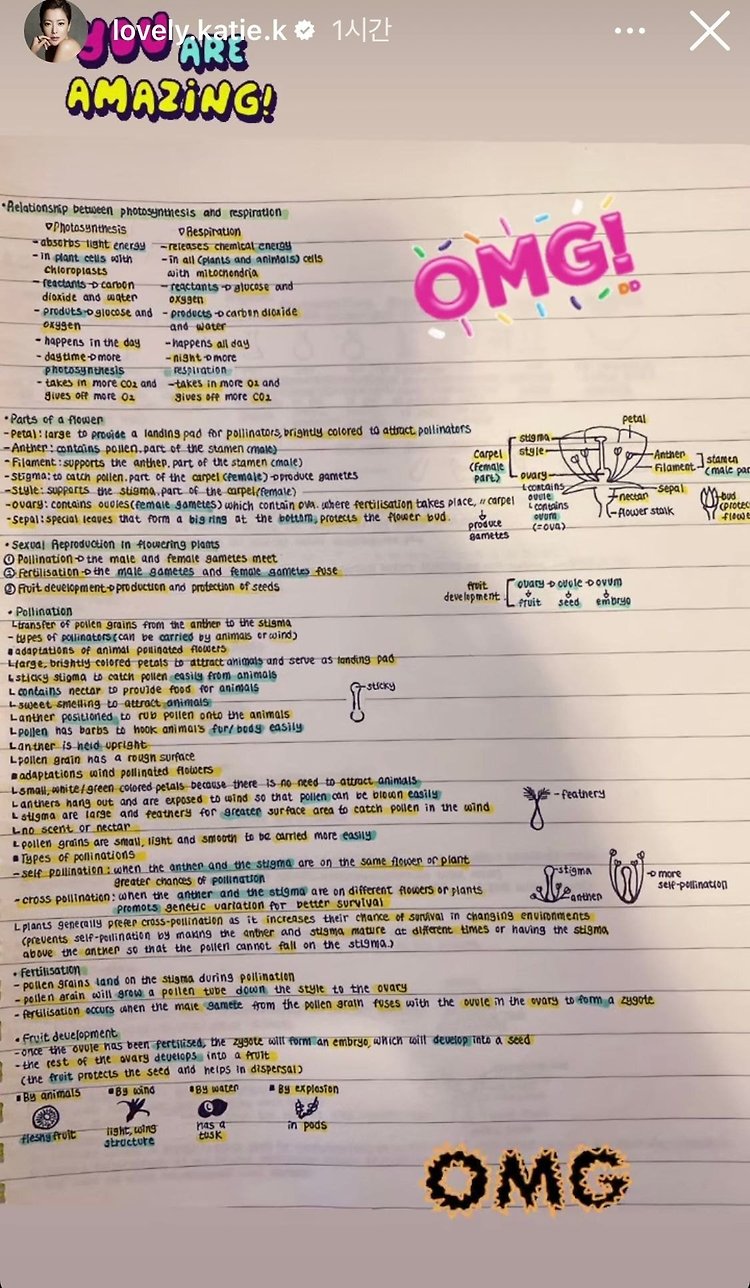 YOU ARE
AMAZING!
lovely.katie.k 1시간
OMG!
•Relationship between photosynthesis and respiration
▽Photosynthesis
-absorbs light energy
-in plant cells with
chloroplasts
-reactants→carbon
dioxide and water
-produts→glucose and
oxygen
-happens in the day
-daytime→more
photosynthesis
-takes in more CO2 and
gives off more O2
▽Respiration
-releases chemical energy
-in all (plants and animals) cells
with mitochondria
-reactants→glucose and
oxygen
-products→carbon dioxide
and water
-happens all day
-night→more
respiration
-takes in more O2 and
gives off more CO2
•Parts of a flower
-Petal: large to provide a landing pad for pollinators, brightly colored to attract pollinators
-Anther: contains pollen. part of the stamen (male)
-Filament: supports the anther, part of the stamen (male)
-Stigma: to catch pollen. part of the carpel (female)→produce gametes
-Style: supports the stigma, part of the carpel (female)
-Ovary: contains ovules (female gametes) which contain ova. where fertilisation takes place, " carpel
-Sepal: special leaves that form a big ring at the bottom, protects the flower bud.
produce
gametes
Petal
stigma
style
ovary
Carpel
(female
part)
Anther
Filament
stamen
(male par
sepal
nectar
flower stalk
└contains
ovule
└contains
ovum
(=ova)
bud
(protec
flowe
•Sexual Reproduction in flowering plants
① Pollination→the male and female gametes meet
② Fertilisation→the male gametes and female gametes fuse
③ Fruit development→production and protection of seeds
fruit
development:
ovary→ovule→ovum
fruit seed embryo
•Pollination
└transfer of pollen grains from the anther to the stigma
-types of pollinators (can be carried by animals or wind)
▪adaptations of animal pollinated flowers
└large, brightly colored petals to attract animals and serve as landing pad
└sticky stigma to catch pollen easily from animals
└contains nectar to provide food for animals
└sweet smelling to attract animals
└anther positioned to rub pollen onto the animals
└pollen has barbs to hook animal's fur/body easily
└anther is held upright
└pollen grain has a rough surface
-sticky
▪adaptations wind pollinated flowers
└small, white/green colored petals because there is no need to attract animals
└anthers hang out and are exposed to wind so that pollen can be blown easily
└stigma are large and feathery for greater surface area to catch pollen in the wind
└no scent or nectar
└pollen grains are small, light and smooth to be carried more easily
-feathery
▪Types of pollinations
-self pollination: when the anther and the stigma are on the same flower or plant
greater chances of pollination
-cross pollination: when the anther and the stigma are on different flowers or plants
promots genetic variation for better survival
stigma
anther
→more
self-pollination
└plants generally prefer cross-pollination as it increases their chance of survival in changing environments
(prevents self-pollination by making the anther and stigma mature at different times or having the stigma
above the anther so that the pollen cannot fall on the stigma.)
•Fertilisation
-pollen grains land on the stigma during pollination
-pollen grain will grow a pollen tube down the style to the ovary
-fertilisation occurs when the male gamete from the pollen grain fuses with the ovule in the ovary to form a zygote
•Fruit development
-once the ovule has been fertilised, the zygote will form an embryo, which will develop into a seed
-the rest of the ovary develops into a fruit
(the fruit protects the seed and helps in dispersal)
▪By animals
fleshy fruit
▪By wind
light, wing
structure
▪By water
has a
tusk
▪By explosion
in pods
OMG